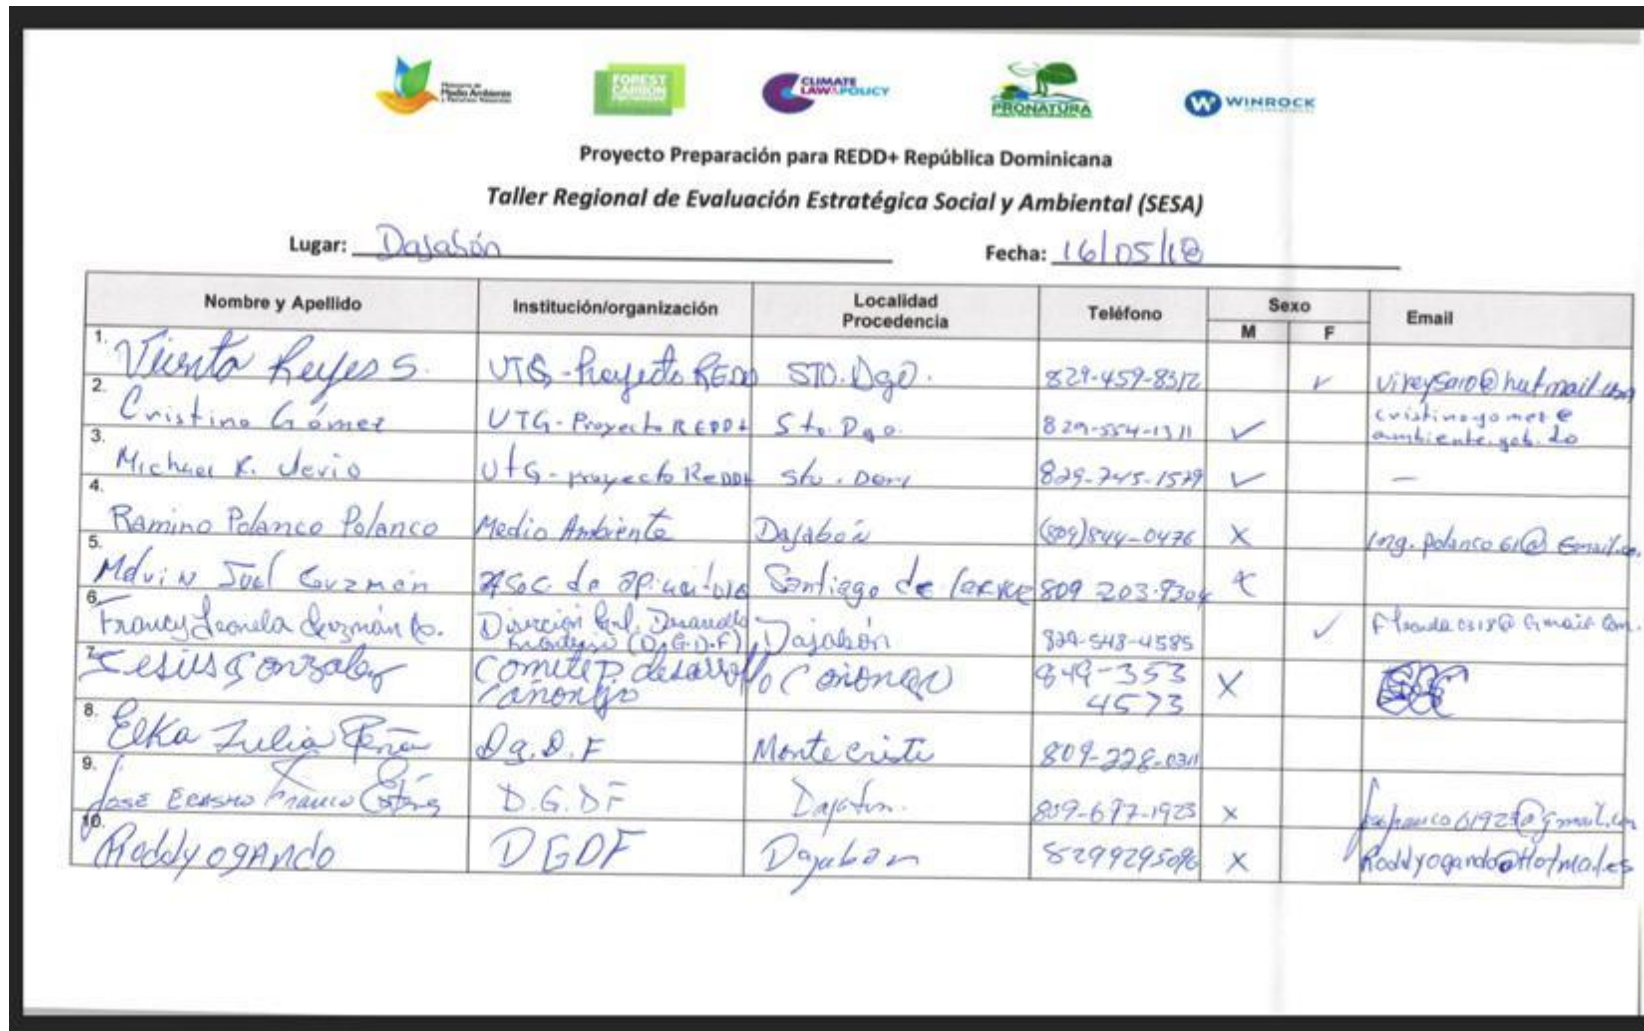 Ministerio de
Medio Ambiente
y Recursos Naturales
FOREST
CARBON
PARTNERSHIP
CLIMATE
LAW&POLICY
PRONATURA
W WINROCK
INTERNATIONAL
Proyecto Preparación para REDD+ República Dominicana
Taller Regional de Evaluación Estratégica Social y Ambiental (SESA)
Lugar: Dajabón Fecha: 16/05/18
Nombre y Apellido Institución/organización Localidad Procedencia Teléfono Sexo M F Email
1. Reyes S. UTG - Proyecto REDD STO. Dgo. 829-459-8312 ✓ vireysaro@hotmail.com
2. Cristino Gómez UTG - Proyecto REDD+ Sto. Dgo. 829-554-1311 ✓ cristino.gomez@
ambiente.gob.do
3. Michael R. UTG - proyecto REDD+ Sto. Dom 829-745-1579 ✓ —
4. Ramino Polanco Polanco Medio Ambiente Dajabón (809)844-0476 X Ing.polanco61@Gmail.co.
5. Melvin Joel Guzmán Asoc. de apicultores Santiago de 809 203-9304 X
6. Francy Leonela Guzmán Dirección Gnl. Desarrollo
Fronterizo (D.G.D.F) Dajabón 829-548-4585 ✓ Gmail Com.
7. Jesus Gonzalez Comite P. desarrollo
Cañongo Cañongo 849-353
4573 X
8. Elka Julia Peña Dg.D.F Monte cristi 809-228-0311
9. José Erasmo Franco D.G.DF Dajabón. 809-697-1923 X @gmail.com
10. Roddy ogando DGDF Dajabon 8299295096 X Roddyogando@Hotmail.es